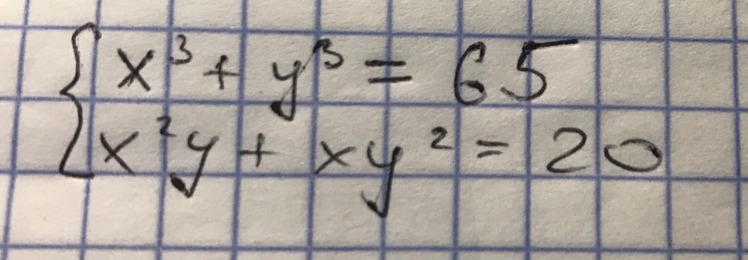 x³ + y³ = 65
x²y + xy² = 20